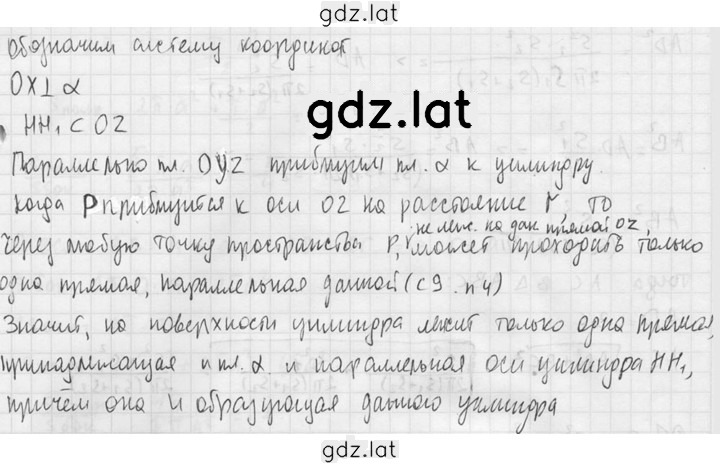 gdz.lat
Обозначим систему координат
OX⊥α
gdz.lat
HH₁⊂OZ
Параллельно пл. OYZ придвигаем пл. α к цилиндру.
Когда P придвигается к оси OZ на расстояние r, то
не леж. на дан прямой OZ,
через любую точку пространства P, может проходить только
одна прямая, параллельная данной (с9. п4)
Значит, на поверхности цилиндра лежит только одна прямая,
принадлежащая и пл. α и параллельная оси цилиндра HH₁,
причем она и образующая данного цилиндра
gdz.lat